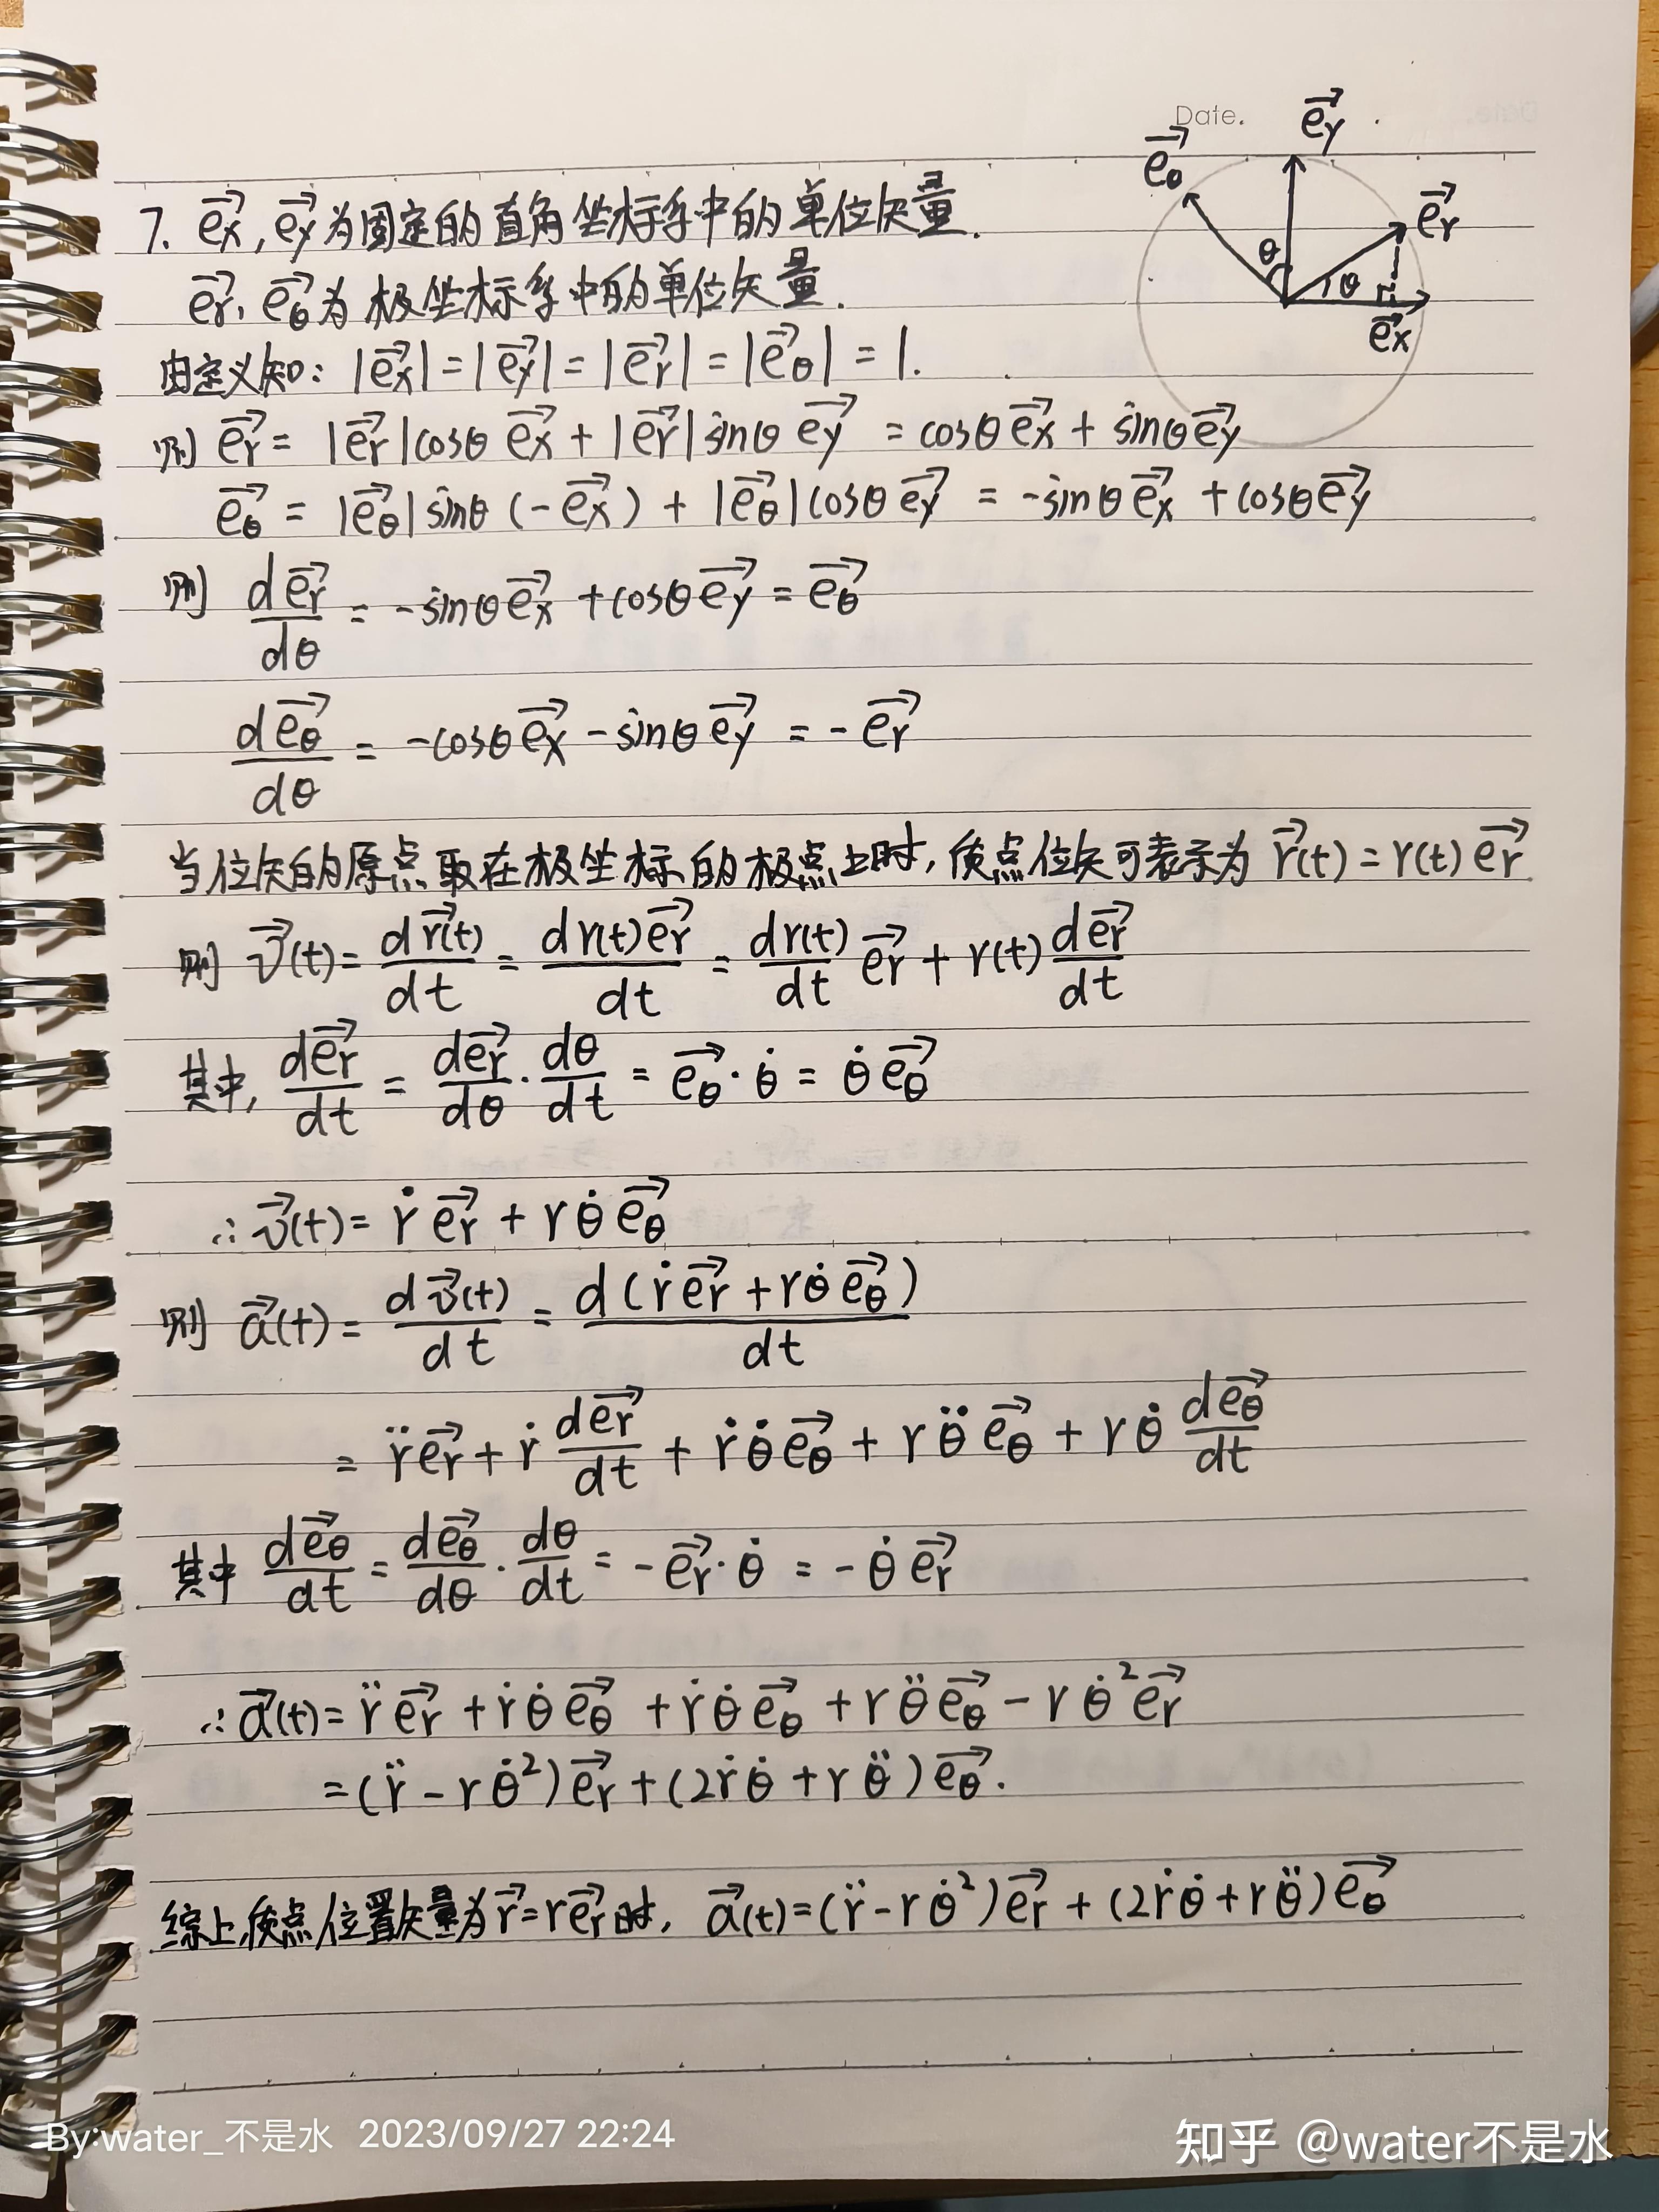 Date.
$\vec{e_y}$
$\vec{e_θ}$
$\vec{e_r}$
θ
θ
$\vec{e_x}$
7. $\vec{e_x}$, $\vec{e_y}$为固定的直角坐标系中的单位矢量.
$\vec{e_r}$, $\vec{e_θ}$为极坐标系中的单位矢量.
由定义知: $|\vec{e_x}|=|\vec{e_y}|=|\vec{e_r}|=|\vec{e_θ}|=1.$
则 $\vec{e_r}=|\vec{e_r}|cosθ\vec{e_x}+|\vec{e_r}|sinθ\vec{e_y}=cosθ\vec{e_x}+sinθ\vec{e_y}$
$\vec{e_θ}=|\vec{e_θ}|sinθ(-\vec{e_x})+|\vec{e_θ}|cosθ\vec{e_y}=-sinθ\vec{e_x}+cosθ\vec{e_y}$
则 $\frac{d\vec{e_r}}{dθ}=-sinθ\vec{e_x}+cosθ\vec{e_y}=\vec{e_θ}$
$\frac{d\vec{e_θ}}{dθ}=-cosθ\vec{e_x}-sinθ\vec{e_y}=-\vec{e_r}$
当位矢的原点取在极坐标的极点上时,质点位矢可表示为 $\vec{r}(t)=r(t)\vec{e_r}$
则 $\vec{v}(t)=\frac{d\vec{r}(t)}{dt}=\frac{dr(t)\vec{e_r}}{dt}=\frac{dr(t)}{dt}\vec{e_r}+r(t)\frac{d\vec{e_r}}{dt}$
其中, $\frac{d\vec{e_r}}{dt}=\frac{d\vec{e_r}}{dθ}·\frac{dθ}{dt}=\vec{e_θ}·\dot{θ}=\dot{θ}\vec{e_θ}$
∴ $\vec{v}(t)=\dot{r}\vec{e_r}+r\dot{θ}\vec{e_θ}$
则 $\vec{a}(t)=\frac{d\vec{v}(t)}{dt}=\frac{d(\dot{r}\vec{e_r}+r\dot{θ}\vec{e_θ})}{dt}$
$=\ddot{r}\vec{e_r}+\dot{r}\frac{d\vec{e_r}}{dt}+\dot{r}\dot{θ}\vec{e_θ}+r\ddot{θ}\vec{e_θ}+r\dot{θ}\frac{d\vec{e_θ}}{dt}$
其中 $\frac{d\vec{e_θ}}{dt}=\frac{d\vec{e_θ}}{dθ}·\frac{dθ}{dt}=-\vec{e_r}·\dot{θ}=-\dot{θ}\vec{e_r}$
∴ $\vec{a}(t)=\ddot{r}\vec{e_r}+\dot{r}\dot{θ}\vec{e_θ}+\dot{r}\dot{θ}\vec{e_θ}+r\ddot{θ}\vec{e_θ}-r\dot{θ}^2\vec{e_r}$
$=(\ddot{r}-r\dot{θ}^2)\vec{e_r}+(2\dot{r}\dot{θ}+r\ddot{θ})\vec{e_θ}.$
综上,质点位置矢量为$\vec{r}=r\vec{e_r}$时, $\vec{a}(t)=(\ddot{r}-r\dot{θ}^2)\vec{e_r}+(2\dot{r}\dot{θ}+r\ddot{θ})\vec{e_θ}$
By:water_不是水 2023/09/27 22:24
知乎 @water不是水